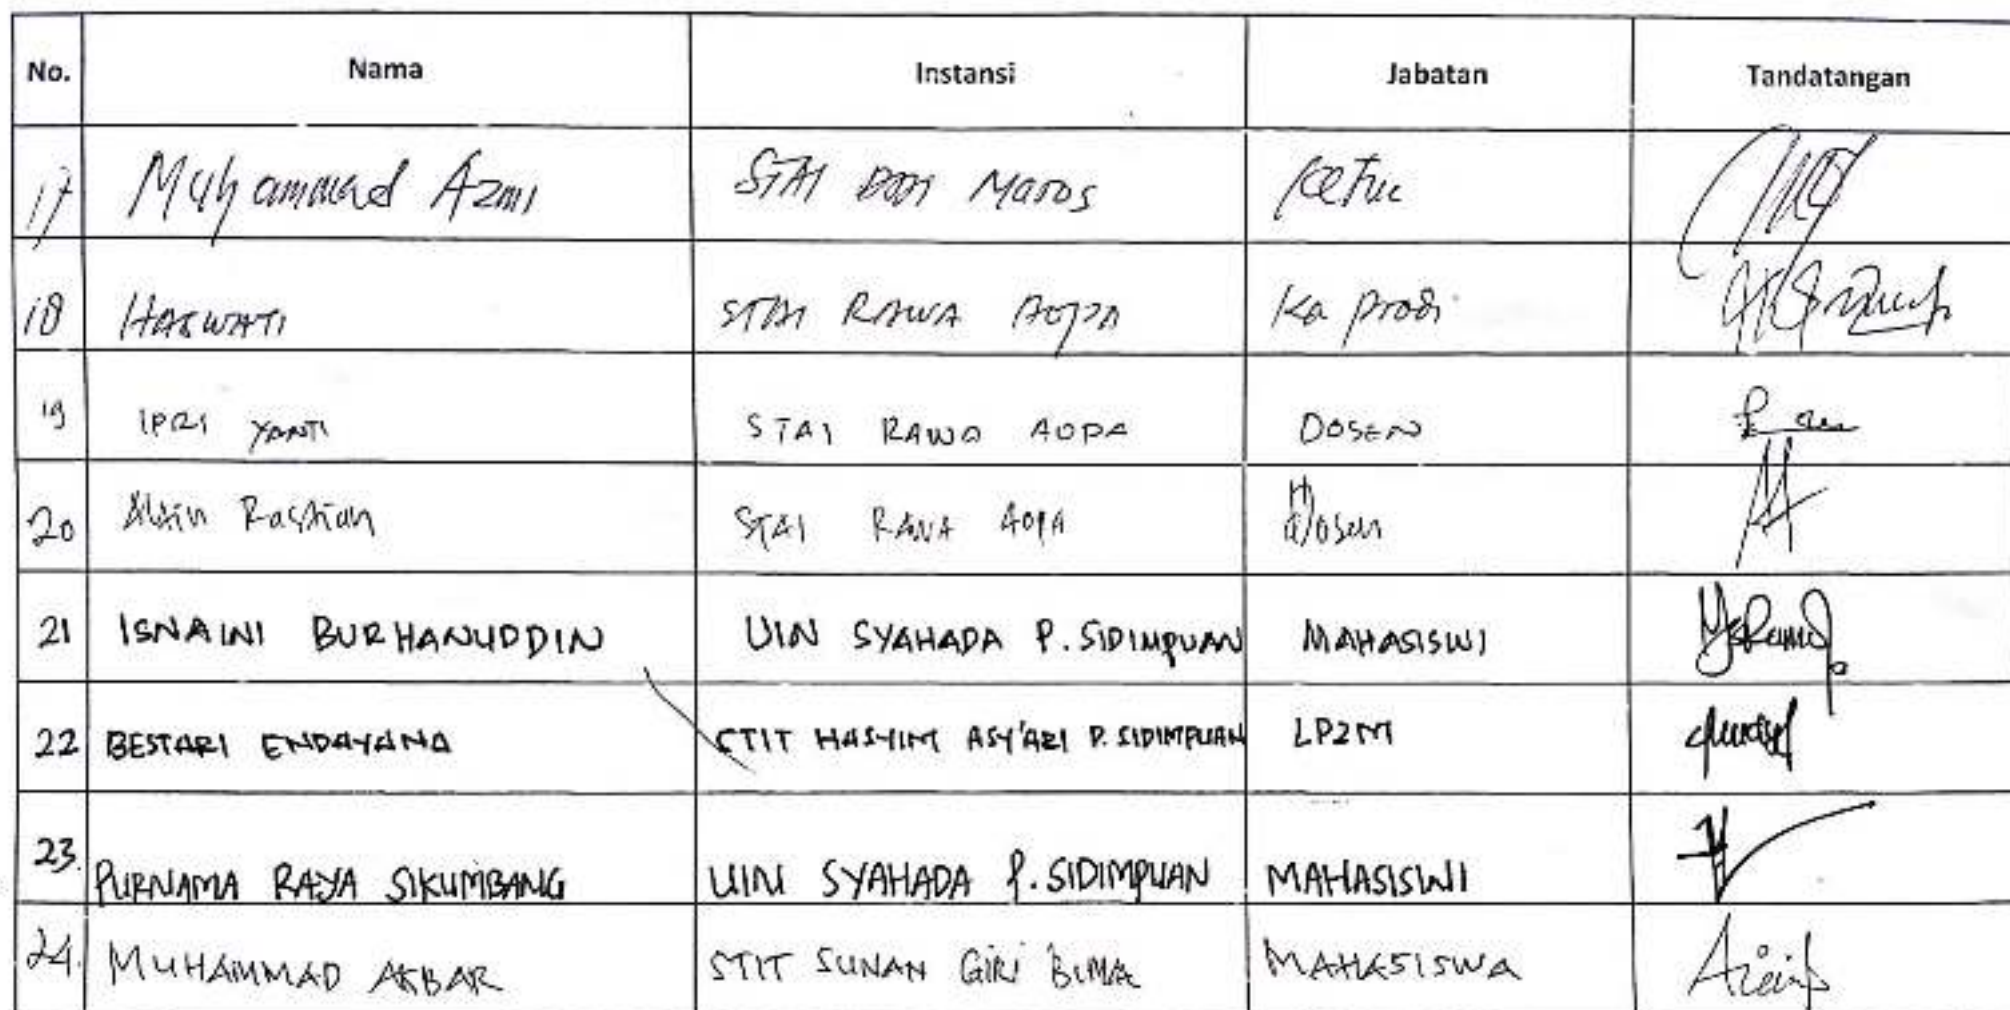 No. Nama Instansi Jabatan Tandatangan
17 Muhammad Azmi STAI DDI Maros Ketua
18 HASWATI STAI RAWA AOPA Ka prodi
19 IPRI YANTI STAI RAWA AOPA DOSEN
20 STAI RAWA AOPA Dosen
21 ISNAINI BURHANUDDIN UIN SYAHADA P. SIDIMPUAN MAHASISWI
22 BESTARI ENDAYANA STIT HASYIM ASY'ARI P. SIDIMPUAN LP2M
23. PURNAMA RAYA SIKUMBANG UIN SYAHADA P. SIDIMPUAN MAHASISWI
24. MUHAMMAD AKBAR STIT SUNAN GIRI BIMA MAHASISWA